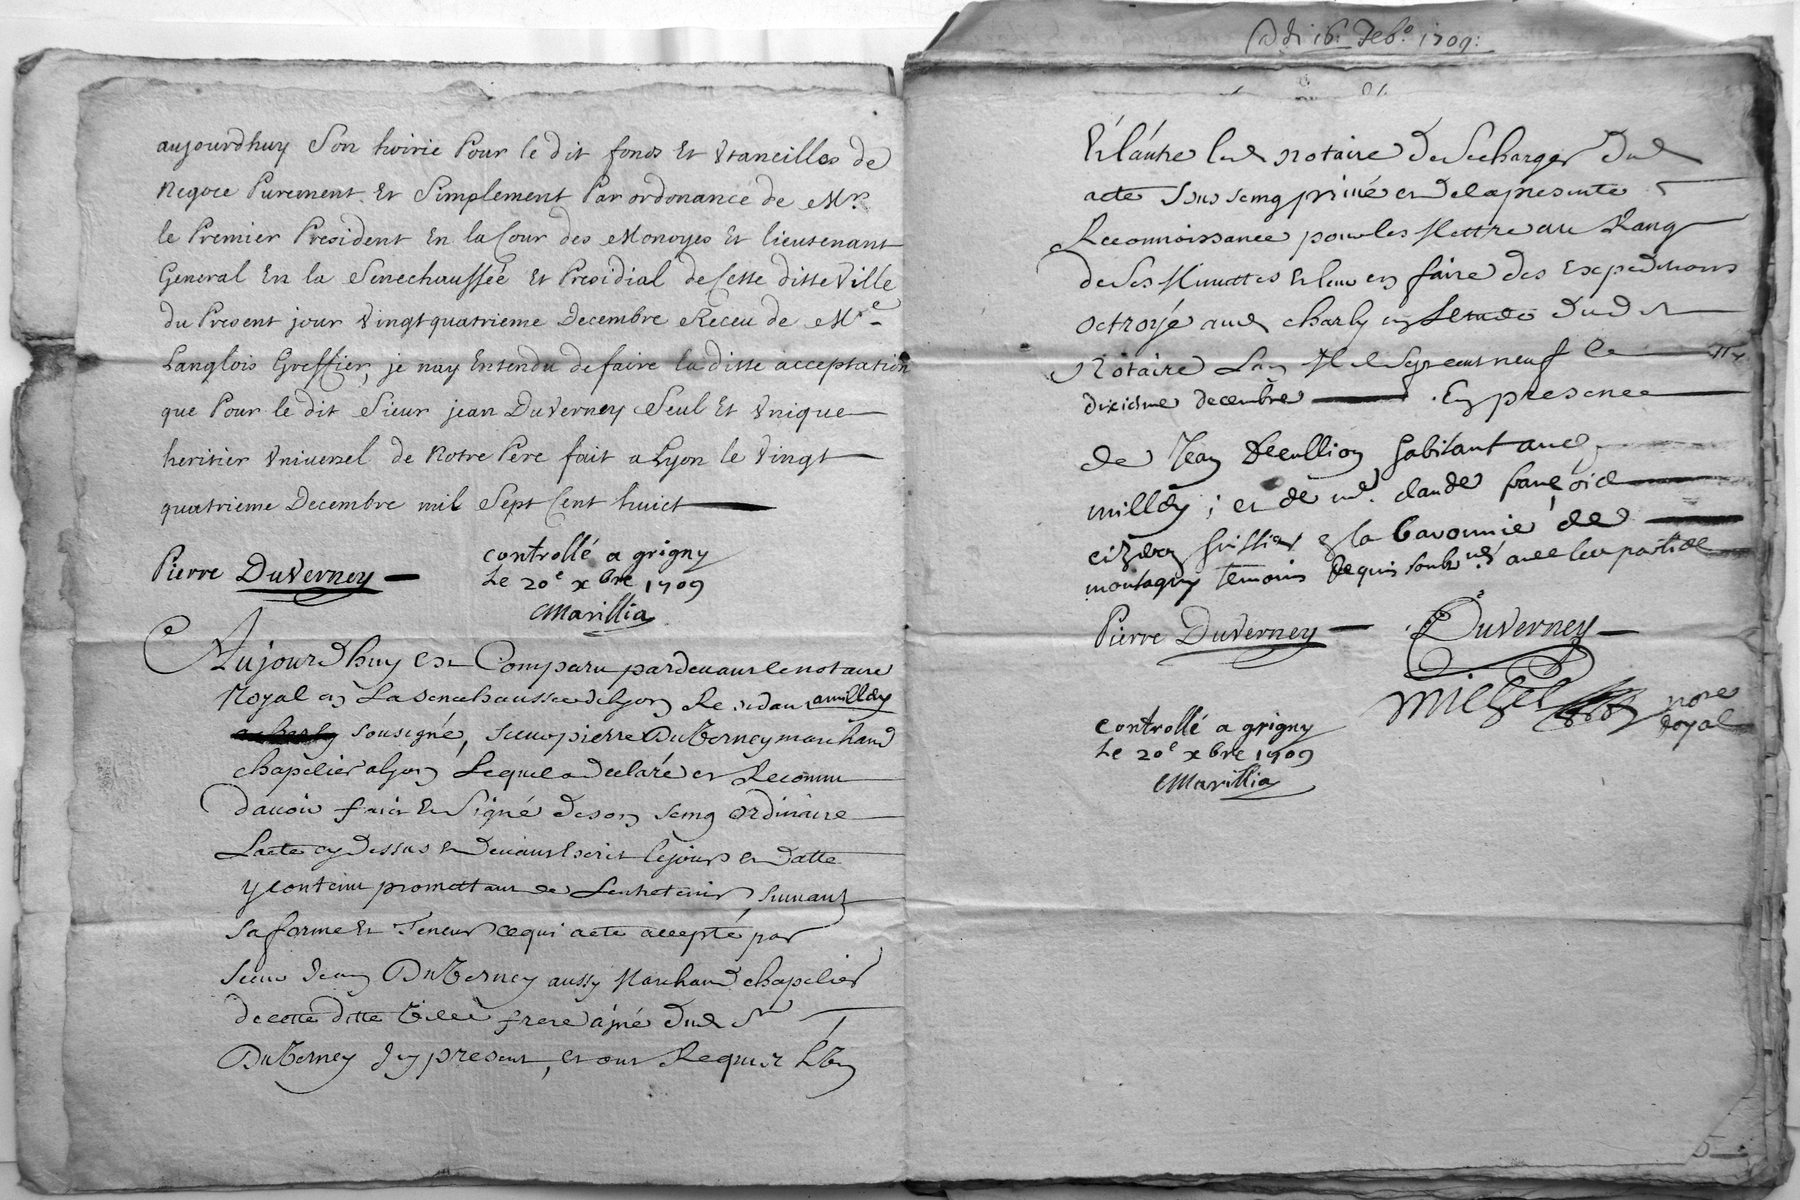 aujourdhuy Son hoirie Pour le dit fonds Et Vtancilles de
Negoce Purement Et Simplement Par ordonance de Mr.
le Premier President En la Cour des Monoyes Et lieutenant
General En la Senechaussée Et Presidial de Cette ditte Ville
du Present jour Vingt quatrieme Decembre Receu de Mre
Langlois Greffier, je nay Entendu de faire la ditte acceptation
que Pour le dit Sieur jean DuVerney Seul Et Vnique
heritier Vniversel de Notre Pere fait a Lyon le Vingt
quatrieme Decembre mil Sept Cent huict
Pierre DuVerney
controllé a grigny
Le 20e xbre 1709
Marillia
Aujourdhuy est Comparu pardevant le notaire
Royal en La senechaussee de Lyon Residant a millery
a charly sousigné, sieur pierre DuVerney marchand
chapelier a Lyon Lequel a declaré et Reconnu
davoir fait et Signé de son seing ordinaire
Lacte cy dessus et devant Escrit le jour et datte
y contenu promettant de Lentretenir, suivant
sa forme et Teneur ce qui acte accepté par
sieur Jean DuVerney aussy Marchand chapelier
de cette ditte Ville frere ainé dud Sr
DuVerney Icy present, et ont Requis L'Vn
A di 16: Feb.o 1709:
Et lautre led notaire de se charger dud
acte sous seing privé et de la presente
Reconnoissance pour les Mettre au Rang
de ses Minuttes Et leur en faire des Expeditions
octroyé aud charly en Lestude dud
Notaire Lan Mil sept cent neuf Le
dixieme decembre En presence
de Jean Decullion habitant aud
millery; et de me. claude françois
huissier en la baronnie de
montagny temoins Requis soubzné avec les parties
Pierre DuVerney
Duverney
Michel
nore
Royal
controllé a grigny
Le 20e xbre 1709
Marillia
5